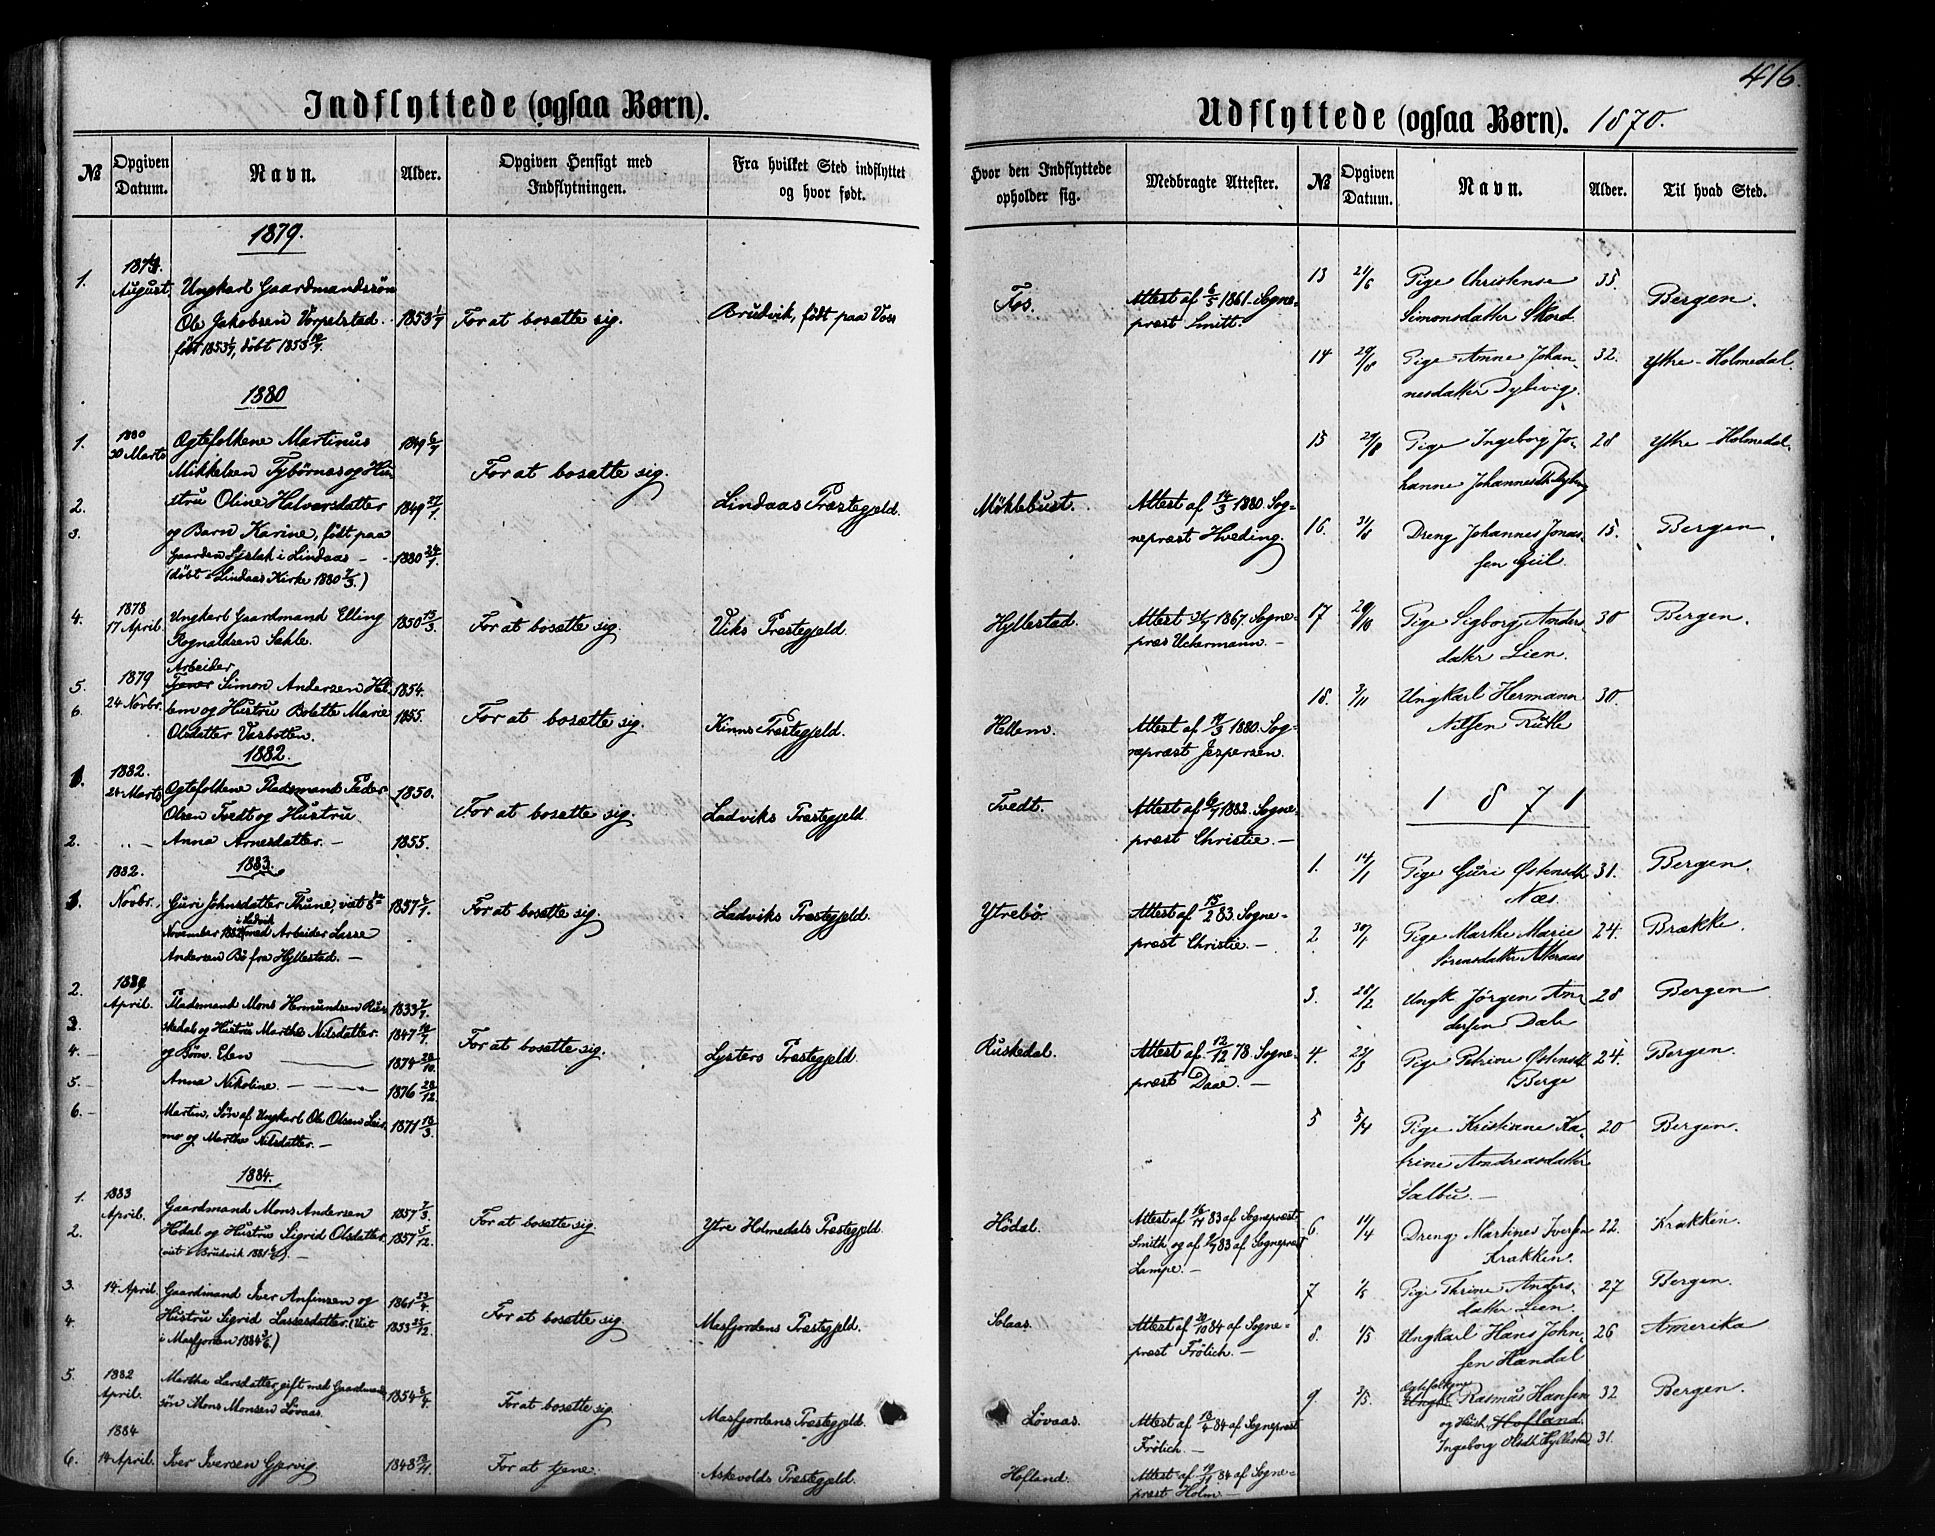 416.
Indflyttede (ogsaa Børn).
№
Opgiven Datum.
Navn.
Alder.
Opgiven Hensigt med Indflytningen.
Fra hvilket Sted indflyttet og hvor født.
Hvor den Indflyttede opholder sig.
Medbragte Attester.
1879.
1. August, Ungkarl Gaardmandssøn
Ole Jakobsen 1853 1/7 For at bosætte sig. Brudvik, født paa Voss Fos. Attest af 6/5 1861. Sogne-
født 1853 1/7, døbt 1853 præst Smitt.
1880
1. 1880 30 Marts Ægtefolkene Martinus 1849 6/7
Mikkelsen Tybørnes og Hu- For at bosætte sig.
2. stru Oline Halvorsdatter 1849 27/7. Lindaas Præstegjeld. Møklebust. Attest af 14/3 1880. Sog-
3. og Barn Karine, født paa nepræst Hveding.
Gaarden i Lindaas - 1880 24/1.
(døbt i Lindaas Kirke 1880 7/3.)
4. 1878 17 April. Ungkarl Gaardmand Elling 1850 15/3. For at bosætte sig. Viks Præstegjeld. Hyllestad. Attest 1867. Sogne-
Rognaldsen Sæhle. præs Uckermann. -
Arbeider
5. 1879 Simon Andersen Hel- 1854.
6. 24 Novbr. lem og Hustru Bolette Marie 1855. For at bosætte sig. Kinns Præstegjeld. Hellem. Attest af 19/3 1880. Sog-
Olsdatter Vasbotten. nepræst Jespersen.
1882.
1. 1882. 24 Marts Ægtefolkene Pladsmand Peder 1850.
Olsen Tvedt og Hustru For at bosætte sig. Ladviks Præstegjeld Tvedt. Attest af 1882. Sogne-
2. „ - Anna Arnesdatter. - 1855. præst Christie. -
1883.
1. 1882. Novbr. Guri Johnsdatter Thune, viet 8de 1857 For at bosætte sig. Ladviks Præstegjeld. Ytrebø. Attest af 15/2 83. Sogne-
i Ladvik
November 1882 med Arbeider Lasse præst Christie. -
Andersen Bø fra Hyllestad. -
2. April. Pladsmand Mons Hermundsen Rus- 1833 7/7.
3. kedal og Hustru Marthe Nilsdatter. 1847 14/7.
4. - og Børn. Elen 1874 20/10. For at bosætte sig. Lysters Præstegjeld. Ruskedal. Attest af 12/12 78. Sogne-
5. - Anna Nikoline. - 1876 28/12. præst Daae. -
6. - Martin, Søn af Ungkarl Ole Olsen Lei-
mo og Marthe Nilsdatter. - 1871 18/3.
1884.
1. 1883 April. Gaardmand Mons Andersen 1857 7/3.
2. Hødal og Hustru Sigrid Olsdatter 1857 5/12. For at bosætte sig. Ytre Holmedals Præstegjeld. Hødal. Attest af 16/4 83 af Sognepræst
viet i Brudvik 1881 Smith og af 83 af Sognepræst
Lampe. -
3. 14 April. Gaardmand Iver Anfinsen og 1861 23/4.
4. Hustru Sigrid Lassesdatter. (Viet 1853 25/12. For at bosætte sig. Masfjordens Præstegjeld. Solaas. Attest af 20/10 84 af Sogne-
i Masfjorden 1884) præst Frölich. -
5. 1882 April. Martha Larsdatter, gift med Gaardmand- 1854 8/4
søn Mons Monsen Løvaas. For at bosætte sig. Masfjordens Præstegjeld. Løvaas. Attest af 18/4 84 af Sognepræst
Frölich. -
6. 1884 14 April. Iver Iversen Gjervig. 1848 12/11. For at tjene. Askevolds Præstegjeld. Hofland. Attest af 19/11 84 af Sogne-
præst Holm. -
Udflyttede (ogsaa Børn). 1870.
№
Opgiven Datum.
Navn.
Alder.
Til hvad Sted.
13 21/6 Pige Christense 35. Bergen.
Simonsdatter Skord.
14 29/8 Pige Anne Johan- 32. Ytre-Holmedal.
nesdatter Dybevig.
15 29/8 Pige Ingeborg Jo- 28 Ytre-Holmedal.
hanne Johannesdtr
16. 31/8 Dreng Johannes Jonas- 15. Bergen
sen Giil.
17 29/10 Pige Sigborg Anders- 30 Bergen.
datter Lien.
18. 3/11 Ungkarl Hermann 30
Nilsen Risthe
1871
1. 14/1 Pige Guri Østensdtr 31. Bergen.
Næs.
2 30/1 Pige Marthe Marie 24. Brække.
Sørensdatter Atteraas
3. 28/2 Ungk. Jørgen An- 28 Bergen
dersen Dale
4. 23/3 Pige Petrine Østensdtr 24. Bergen.
Berge
5 5/4 Pige Kristiane Ka- 20 Bergen.
trine Andreasdatter
Salbu. -
6. 14/4 Dreng Martines Iversen 22. Krakken.
Krakken.
7 Pige Thrine Anders- 27 Bergen.
datter Lien.
8. Ungkarl Hans John- 26 Amerika
sen Handal
9 3/5. Ægtefolkene Rasmus Hansen 32 Bergen.
og Hust. Hofland.
Ingeborg Olsdtr Hyllestad 31.